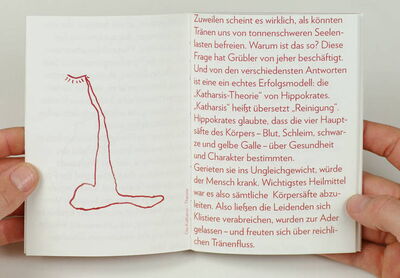 Zuweilen scheint es wirklich, als könnten
Tränen uns von tonnenschweren Seelen-
lasten befreien. Warum ist das so? Diese
Frage hat Grübler von jeher beschäftigt.
Und von den verschiedensten Antworten
ist eine ein echtes Erfolgsmodell: die
„Katharsis-Theorie“ von Hippokrates.
„Katharsis“ heißt übersetzt „Reinigung“.
Hippokrates glaubte, dass die vier Haupt-
säfte des Körpers – Blut, Schleim, schwar-
ze und gelbe Galle – über Gesundheit
und Charakter bestimmten.
Gerieten sie ins Ungleichgewicht, würde
der Mensch krank. Wichtigstes Heilmittel
war es also sämtliche Körpersäfte abzu-
leiten. Also ließen die Leidenden sich
Klistiere verabreichen, wurden zur Ader
gelassen – und freuten sich über reichli-
chen Tränenfluss.
Die Katharsis-Theorie